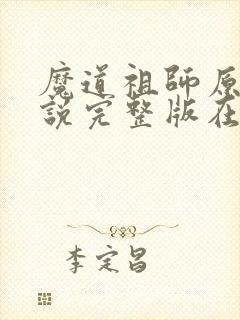 魔道祖師原
説完整版在
李定昌